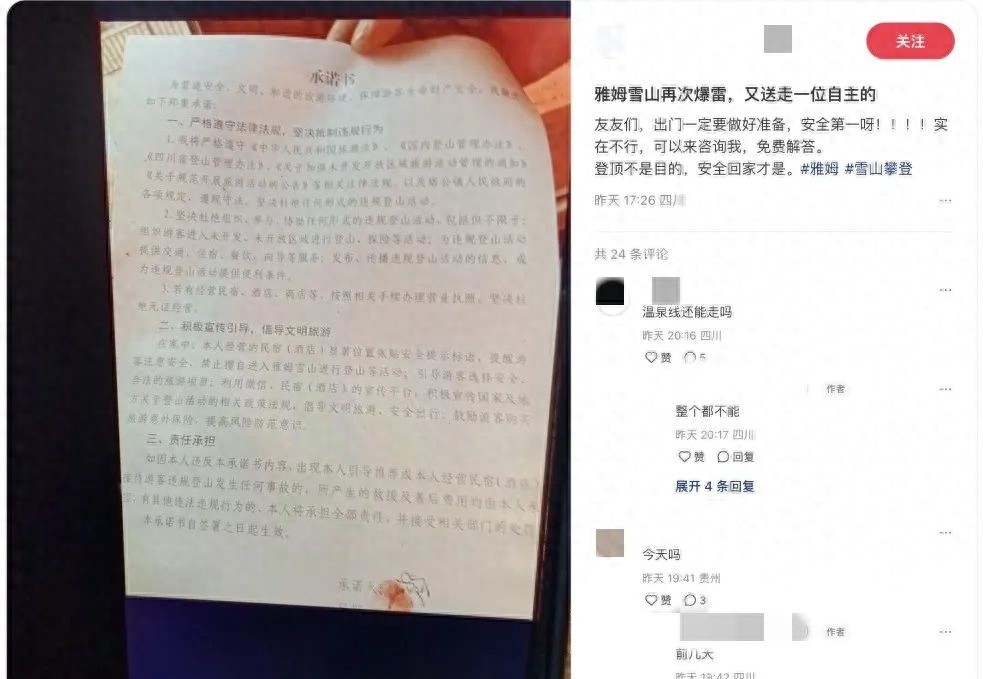 承诺书
为营造安全、文明、和谐的旅游环境，保障游客生命财产安全，我郑重
如下郑重承诺：
一、严格遵守法律法规，坚决抵制违规行为
1.我将严格遵守《中华人民共和国旅游法》、《国内登山管理办法》、
《四川省登山管理办法》、《关于加强未开发开放区域旅游活动管理的通知》
《关于规范开展旅游活动的公告》等相关法律法规，以及塔公镇人民政府的
各项规定，遵规守法，坚决杜绝任何形式的违规登山活动。
2.坚决杜绝组织、参与、协助任何形式的违规登山活动，包括但不限于：
组织游客进入未开发、未开放区域进行登山、探险等活动；为违规登山活动
提供交通、住宿、餐饮、向导等服务；发布、传播违规登山活动的信息，或
为违规登山活动提供便利条件。
3.若有经营民宿、酒店、商店等，按照相关手续办理营业执照，坚决杜
绝无证经营。
二、积极宣传引导，倡导文明旅游
在家中、本人经营的民宿（酒店）显著位置张贴安全提示标志，提醒游
客注意安全，禁止擅自进入雅姆雪山进行登山等活动；引导游客选择安全、
合法的旅游项目；利用微信、民宿（酒店）的宣传平台，积极宣传国家及地
方关于登山活动的相关政策法规，倡导文明旅游、安全出行；鼓励游客购买
旅游意外保险，提高风险防范意识。
三、责任承担
如因本人违反本承诺书内容，出现本人引导推荐或本人经营民宿（酒店）
接待游客违规登山发生任何事故的，所产生的救援及善后费用均由本人承
有其他违法违规行为的，本人将承担全部责任，并接受相关部门的处罚
本承诺书自签署之日起生效。
承诺人
关注
雅姆雪山再次爆雷，又送走一位自主的
友友们，出门一定要做好准备，安全第一呀！！！！实
在不行，可以来咨询我，免费解答。
登顶不是目的，安全回家才是。#雅姆 #雪山攀登
昨天 17:26 四川
共 24 条评论
温泉线还能走吗
昨天 20:16 四川
赞 5
作者
整个都不能
昨天 20:17 四川
赞 回复
展开 4 条回复
今天吗
昨天 19:41 贵州
赞 3
作者
前几天
昨天 19:42 四川